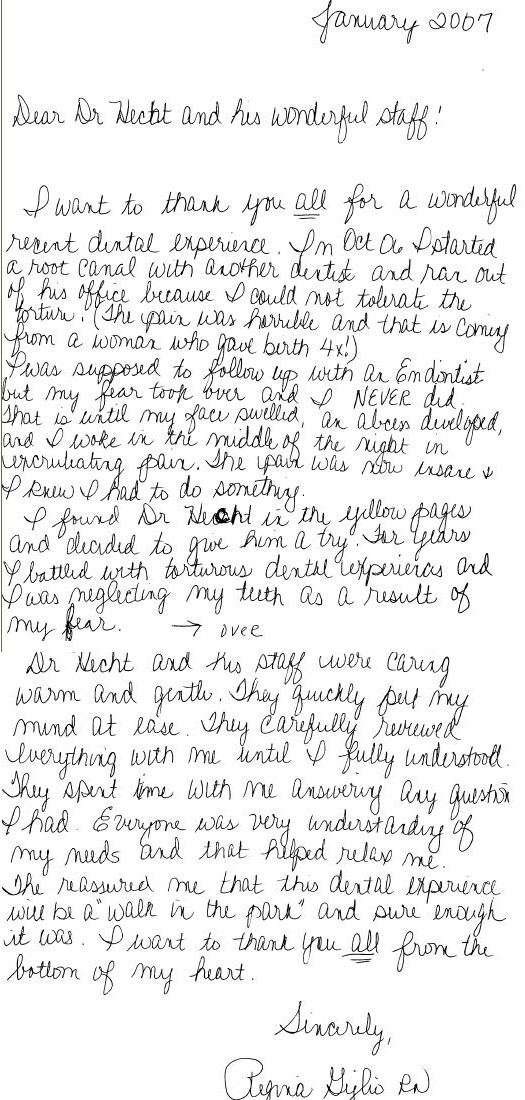 January 2007
Dear Dr Hecht and his wonderful staff!
I want to thank you all for a wonderful
recent dental experience. In Oct 06 I started
a root canal with another dentist and ran out
of his office because I could not tolerate the
torture. (The pain was horrible and that is coming
from a woman who gave birth 4x!)
I was supposed to follow up with an Endontist
but my fear took over and I NEVER did.
That is until my face swelled, an abcess developed,
and I woke in the middle of the night in
excruciating pain. The pain was now insane &
I knew I had to do something.
I found Dr Hecht in the yellow pages
and decided to give him a try. For years
I battled with torturous dental experiences and
I was neglecting my teeth as a result of
my fear. → over
Dr Hecht and his staff were caring
warm and gentle. They quickly put my
mind at ease. They carefully reviewed
everything with me until I fully understood.
They spent time with me answering any question
I had. Everyone was very understanding of
my needs and that helped relax me.
The reassured me that this dental experience
will be a "walk in the park" and sure enough
it was. I want to thank you all from the
bottom of my heart.
Sincerely,
Regina Giglio RN